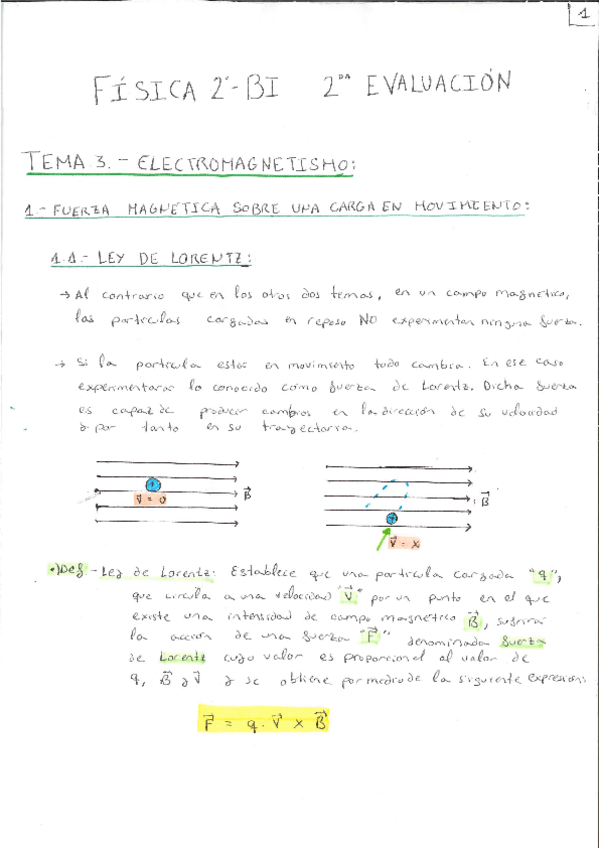 1
FÍSICA 2º-BI 2ᴰᴬ EVALUACIÓN
TEMA 3.- ELECTROMAGNETISMO:
1.- FUERZA MAGNÉTICA SOBRE UNA CARGA EN MOVIMIENTO:
1.1.- LEY DE LORENTZ:
→ Al contrario que en los otros dos temas, en un campo magnético,
las partículas cargadas en reposo NO experimentan ninguna fuerza.
→ Si la partícula está en movimiento todo cambia. En ese caso
experimentará lo conocido como fuerza de Lorentz. Dicha fuerza
es capaz de producir cambios en la dirección de su velocidad
y por tanto en su trayectoria.
+ V⃗ = 0 B⃗
+ V⃗ = x B⃗
•)Def - Ley de Lorentz: Establece que una partícula cargada "q",
que circula a una velocidad "V⃗" por un punto en el que
existe una intensidad de campo magnético B⃗, sufrirá
la acción de una fuerza "F⃗" denominada fuerza
de Lorentz cuyo valor es proporcional al valor de
q, B⃗ y V⃗ y se obtiene por medio de la siguiente expresión:
F⃗ = q · V⃗ x B⃗